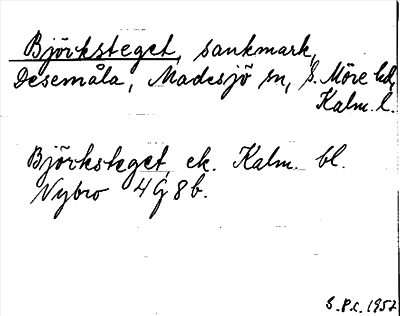 Björksteget, sankmark,
Desemåla, Madesjö sn, S. Möre hd,
Kalm. l.
Björksteget, ek. Kalm. bl.
Nybro 4G8b.
S.P.L. 1957